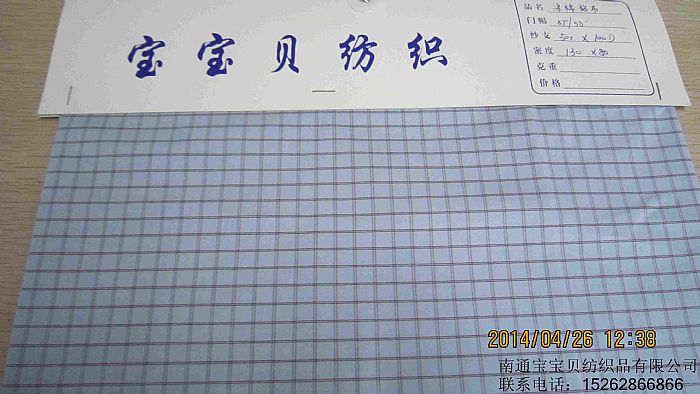 宝宝贝纺织
品名 涤棉格布
门幅 57/58"
纱支
密度 130 X 80
克重
价格
2014/04/26 12:38
南通宝宝贝纺织品有限公司
联系电话：15262866866